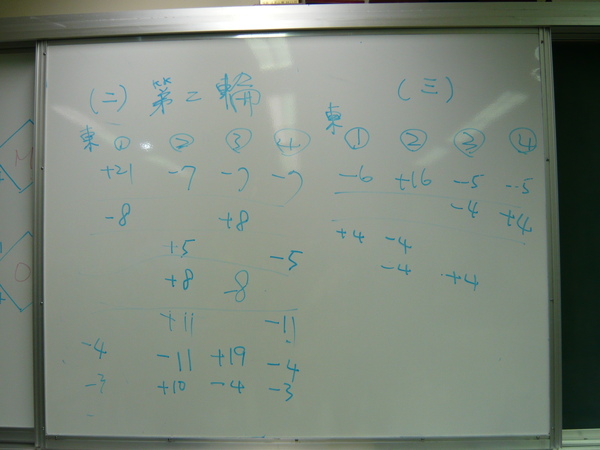 (二) 第二輪
東 ① ② ③ ④
+21 -7 -7 -7
-8 +8
+5 -5
+8 -8
+11 -11
-4 -11 +19 -4
-3 +10 -4 -3
(三)
東 ① ② ③ ④
-6 +16 -5 -5
-4 +4
+4 -4
-4 +4
M
O